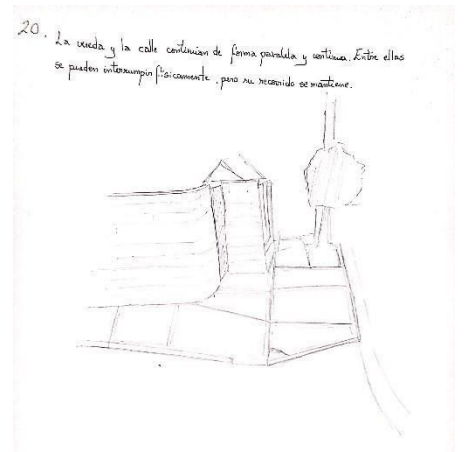 20. La vereda y la calle continúan de forma paralela y continua. Entre ellas
se pueden interrumpir físicamente, pero su recorrido se mantiene.